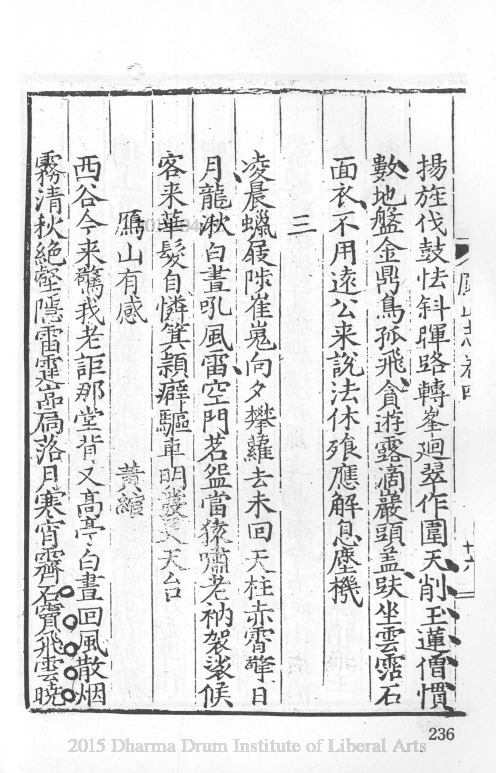 揚旌伐鼓怯斜暉路轉峯廻翠作圍天削玉蓮僧慣
數地盤金鼎鳥孤飛貪遊露滴巖頭盖趺坐雲霑石
面衣不用遠公来說法休飱應解息塵機
三
凌晨蠟屐陟崔嵬向夕攀蘿去未回天柱赤霄擎日
月龍湫白晝吼風雷空門茗盌當猿嘯老衲袈裟候
客来華髮自憐箕頴癖驅車明發又天台
鴈山有感 黄綰
西谷今来驚我老詎那堂背又髙亭白晝回風散烟
霧清秋絶壑隱雷霆嵓扃落月寒宵霽石竇飛雲曉
236
2015 Dharma Drum Institute of Liberal Arts